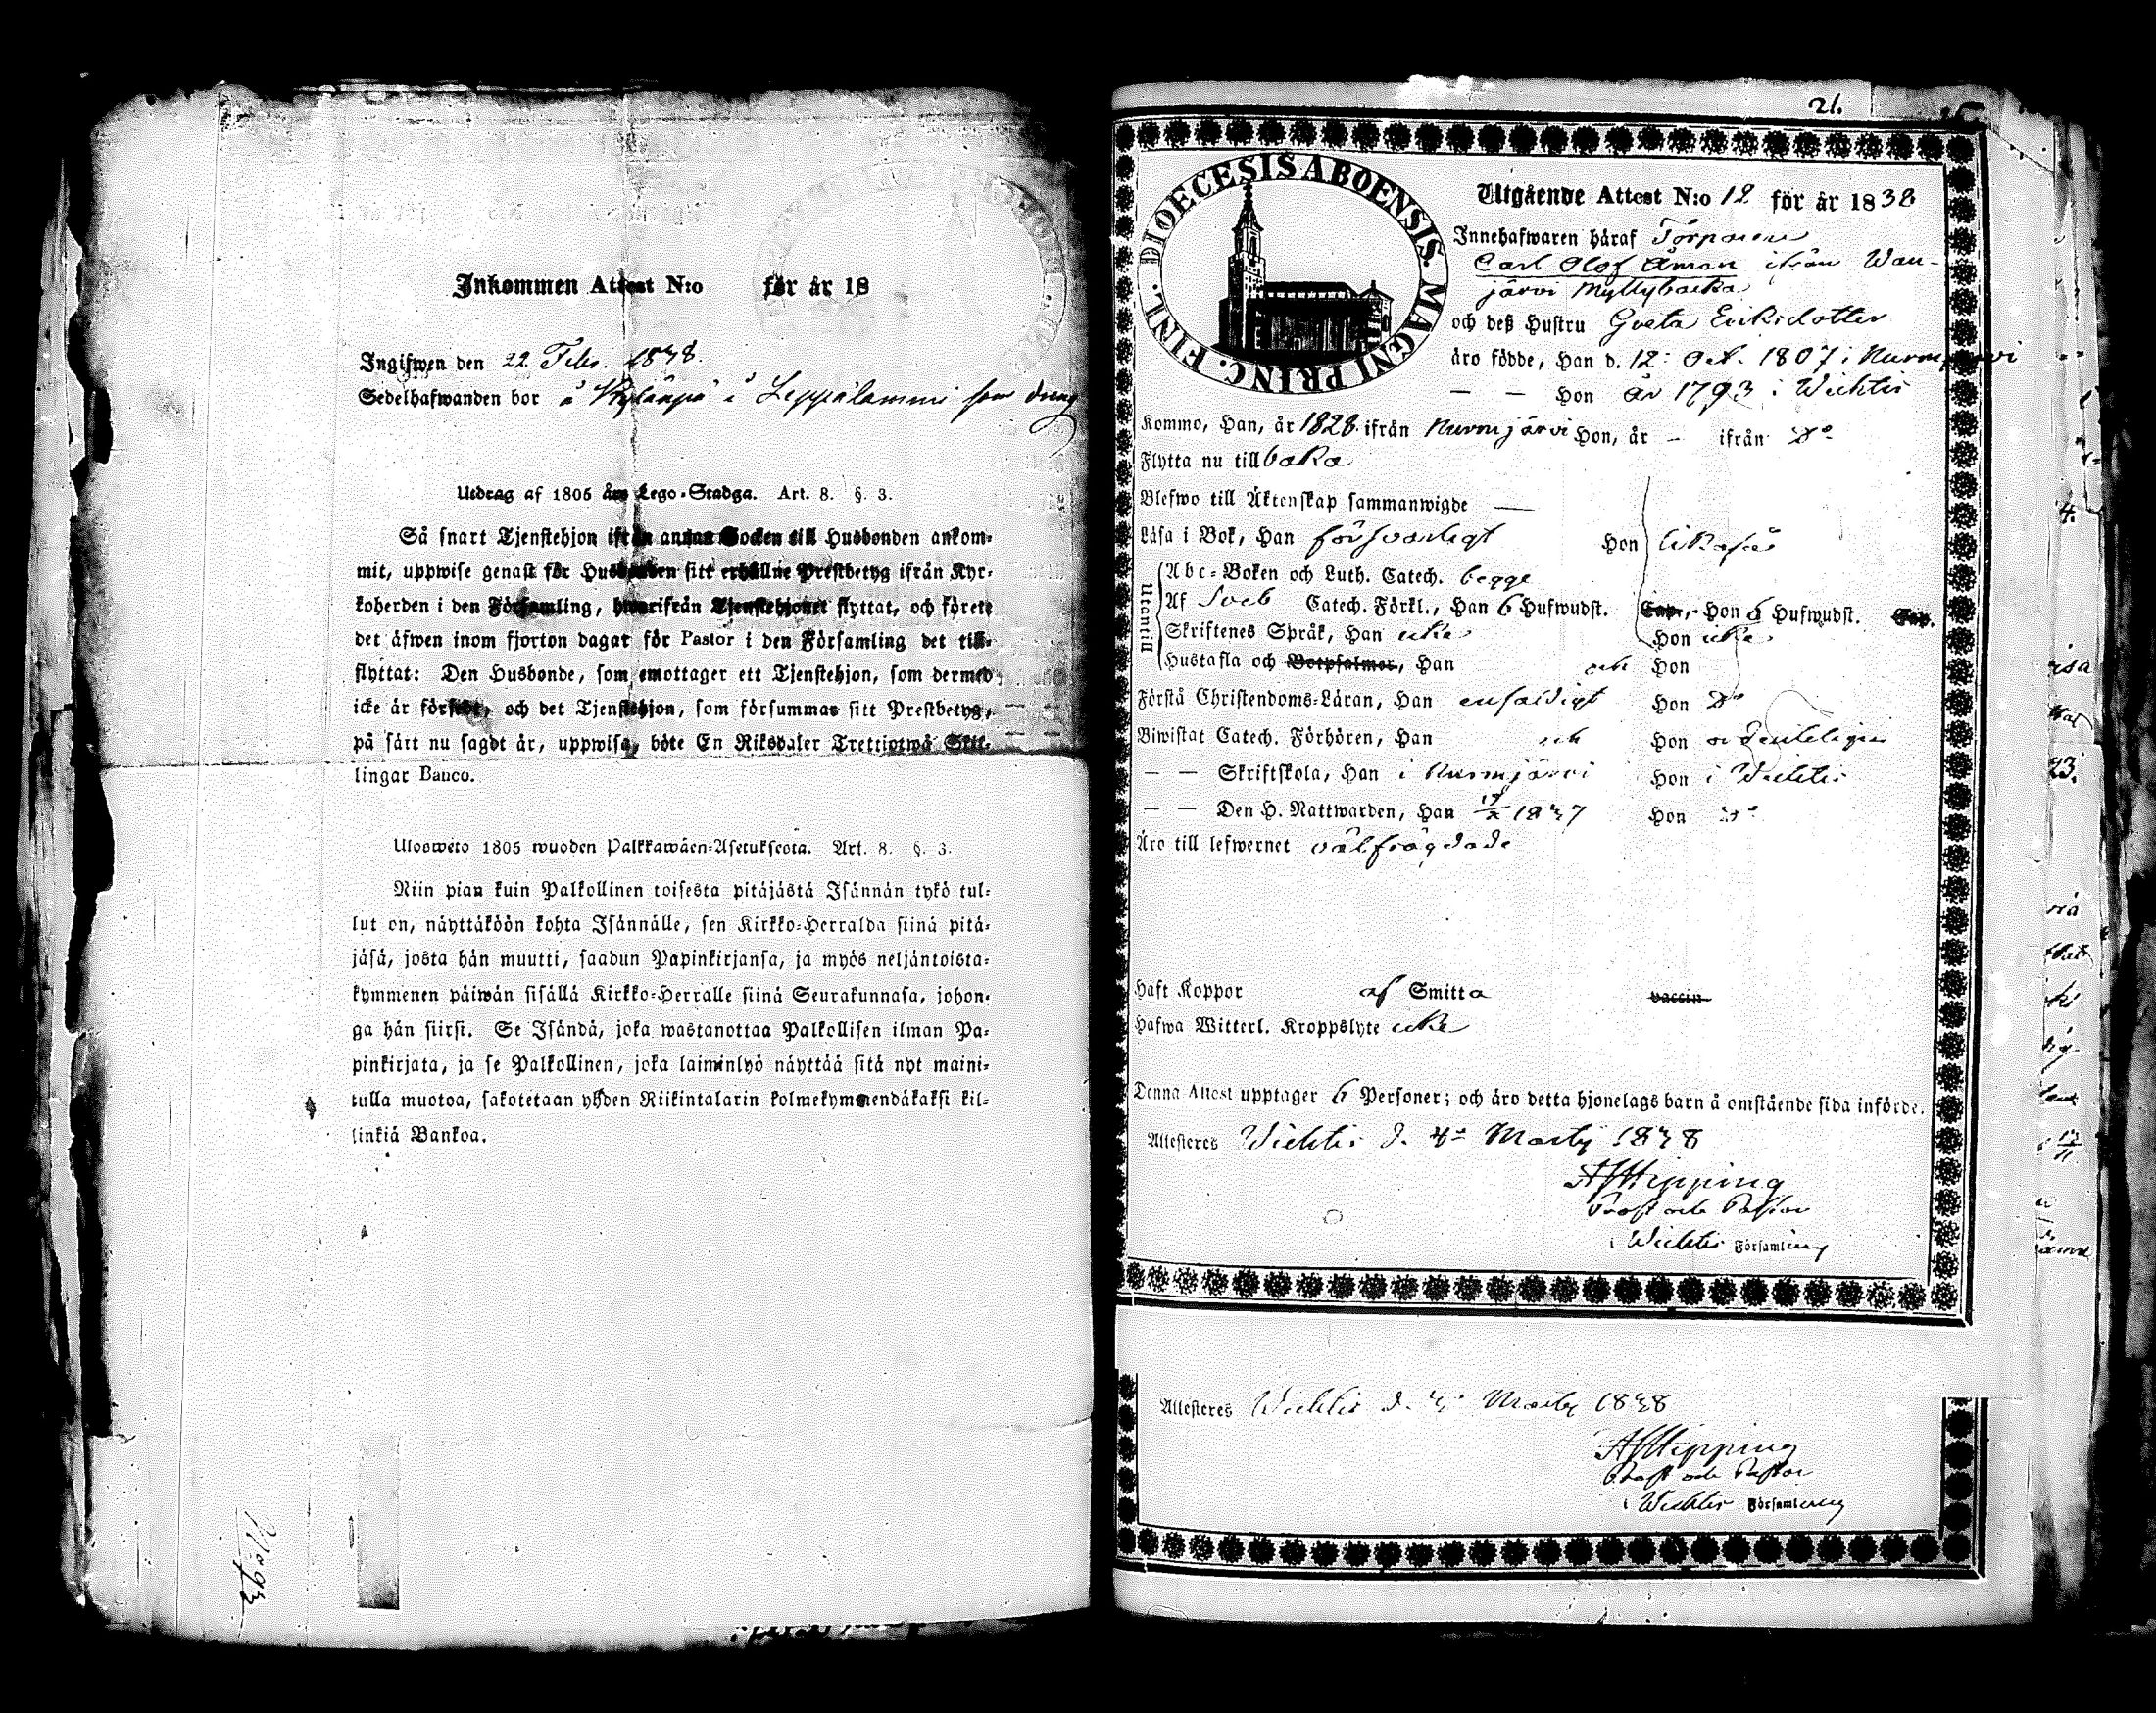 Inkommen Attest N:o för år 18
Ingifwen den 22 Febr. 1838.
Sedelhafwanden bor å Kylänpä i Leppälammi som dräng
Utdrag af 1805 års Lego-Stadga. Art. 8. §. 3.
Så snart Tjenstehjon ifrån annan Socken till Husbonden ankom-
mit, uppwise genast för Husbonden sitt erhållne Prestbetyg ifrån Kyr-
koherden i den Församling, hwarifrån Tjenstehjonet flyttat, och förete
det äfwen inom fjorton dagar för Pastor i den Församling det till-
flyttat: Den Husbonde, som emottager ett Tjenstehjon, som dermed
icke är försedt, och det Tjenstehjon, som försummar sitt Prestbetyg,
på sätt nu sagdt är, uppwisa, böte En Riksdaler Trettiotwå Skil-
lingar Banco.
Ulosweto 1805 wuoden Palkkawäen-Asetuksesta. Art. 8. §. 3.
Niin pian kuin Palkollinen toisesta pitäjästä Isännän tykö tul-
lut on, näyttäköön kohta Isännälle, sen Kirkko-Herralda siinä pitä-
jäsä, josta hän muutti, saadun Papinkirjansa, ja myös neljäntoista-
kymmenen päiwän sisällä Kirkko-Herralle siinä Seurakunnasa, johon-
ga hän siirsi. Se Isändä, joka wastanottaa Palkollisen ilman Pa-
pinkirjata, ja se Palkollinen, joka laiminlyö näyttää sitä nyt maini-
tulla muotoa, sakotetaan yhden Riikintalarin kolmekymmendäkaksi kil-
linkiä Bankoa.
21.
DIOECESIS ABOENSIS. MAGNI PRINC. FINL.
Utgående Attest N:o 12 för år 1838
Innehafwaren häraf Torparen
Carl Olof Åman ifrån Wan-
järvi Myllybacka
och deß Hustru Greta Eriksdotter
äro födde, Han d. 12: Oct. 1807 i Nurmijärvi
— — Hon år 1793 i Wichtis
Kommo, Han, år 1828 ifrån Nurmijärvi Hon, år — ifrån Do
Flytta nu tillbaka
Blefwo till Äktenskap sammanwigde —
Läsa i Bok, Han försvarligt Hon likaså
Utantill
Abc-Boken och Luth. Catech. begge
Af Sveb Catech. Förkl., Han 6 Hufwudst. Cap., Hon 6 Hufwudst. Cap.
Skriftenes Språk, Han icke Hon icke
Hustafla och Botpsalmer, Han och Hon
Förstå Christendoms-Läran, Han enfaldigt Hon Do
Biwistat Catech. Förhören, Han och Hon ordenteligen
— — Skriftskola, Han i Nurmijärvi Hon i Wichtis
— — Den H. Nattwarden, Han 1837 Hon Do
Äro till lefwernet välfrägdade
Haft Koppor af Smitta vaccin
Hafwa Witterl. Kroppslyte icke
Denna Attest upptager 6 Personer; och äro detta hjonelags barn å omstående sida införde.
Attesteres Wichtis d. 4de Martij 1838
AJHipping
Prost och Pastor
i Wichtis Församling
Attesteres Wichtis d. Martij 1838
AJHipping
Prost och Pastor
i Wichtis Församling